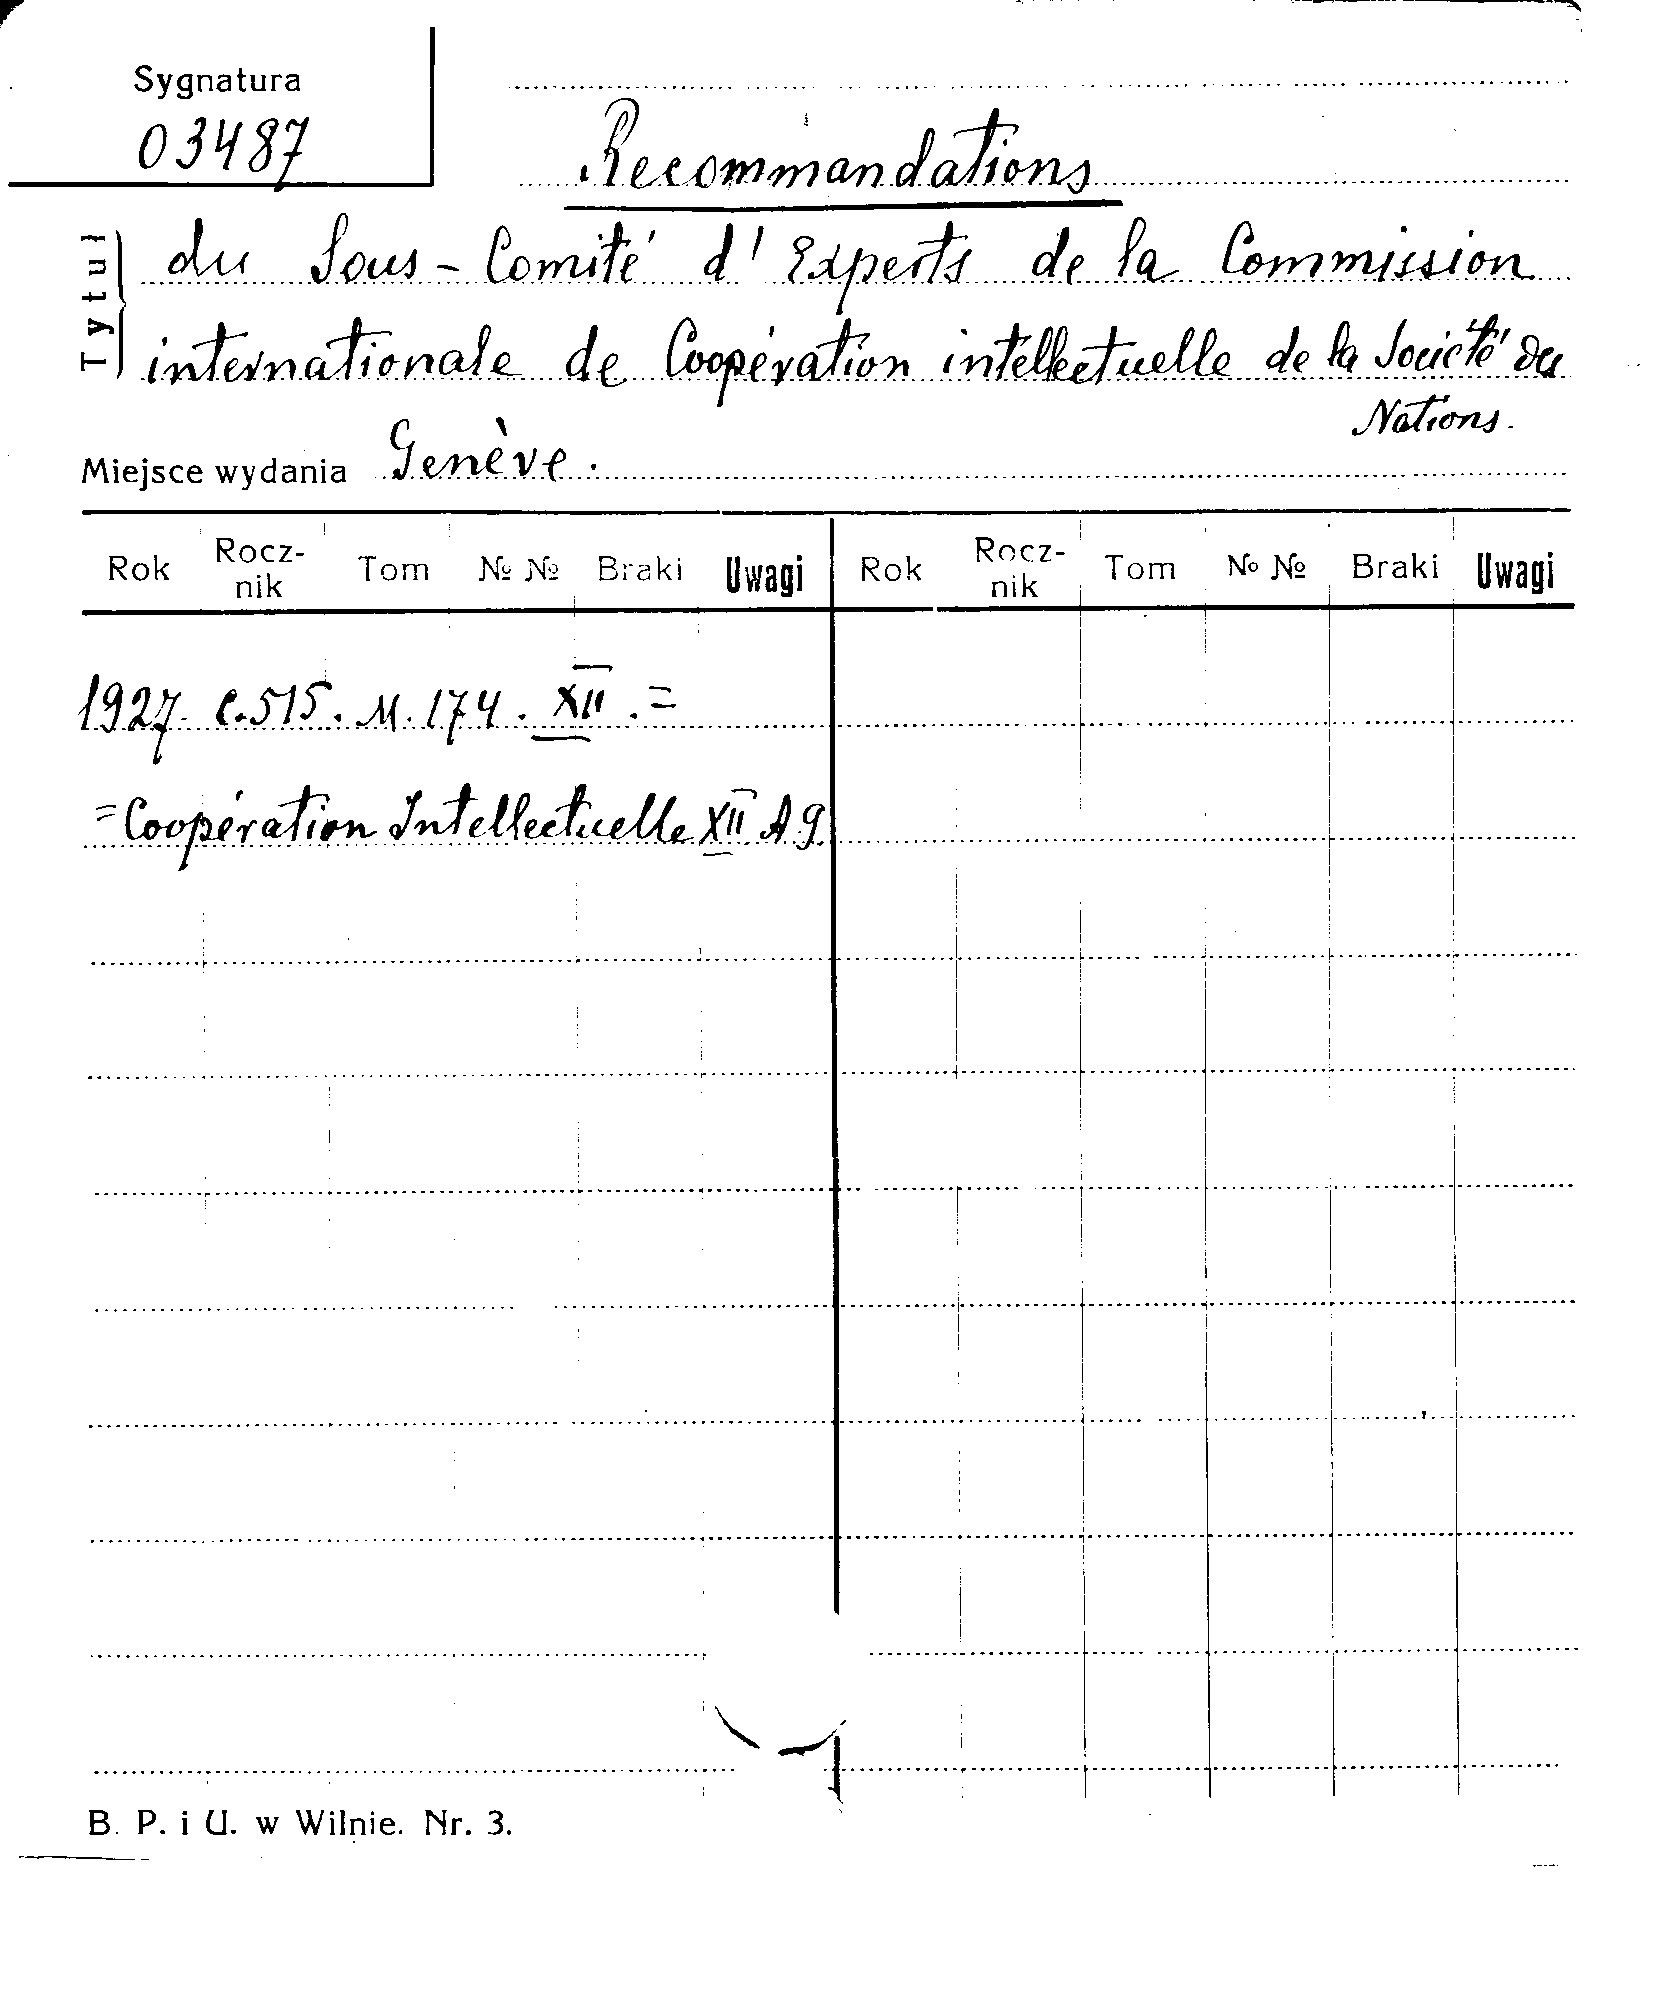 Sygnatura
03487
Recommandations
Tytuł
du Sous-Comité d'Experts de la Commission
internationale de Coopération intellectuelle de la Société des
Nations.
Miejsce wydania Genève.
Rok Rocz-nik Tom №№ Braki Uwagi Rok Rocz-nik Tom №№ Braki Uwagi
1927. C.515. M.174. XII. =
=Coopération Intellectuelle XII A 9.
B. P. i U. w Wilnie. Nr. 3.